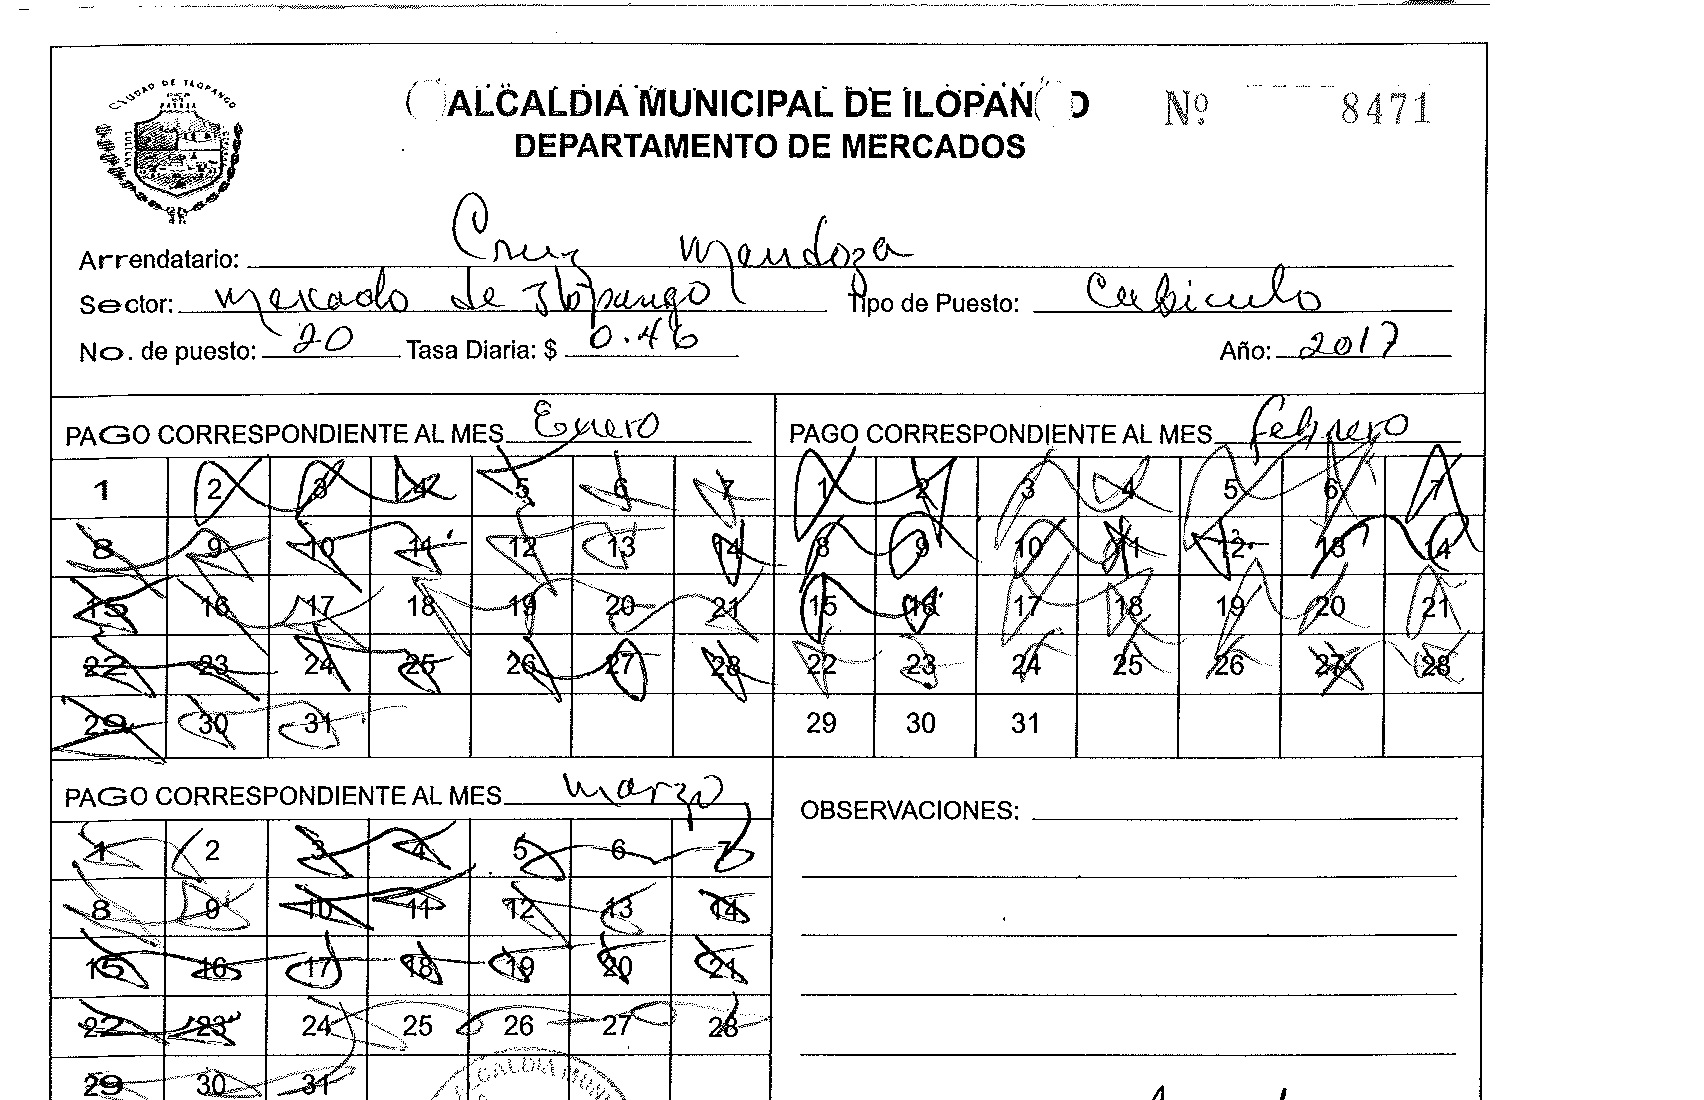 CIUDAD DE ILOPANGO
ALCALDIA MUNICIPAL DE ILOPANGO
Nº 8471
DEPARTAMENTO DE MERCADOS
Arrendatario: Cruz Mendoza
Sector: Mercado de Ilopango Tipo de Puesto: Cubiculo
No. de puesto: 20 Tasa Diaria: $ 0.46 Año: 2017
PAGO CORRESPONDIENTE AL MES Enero
1 2 3 4 5 6 7
8 9 10 11 12 13 14
15 16 17 18 19 20 21
22 23 24 25 26 27 28
29 30 31
PAGO CORRESPONDIENTE AL MES febrero
1 2 3 4 5 6 7
8 9 10 11 12 13 14
15 16 17 18 19 20 21
22 23 24 25 26 27 28
29 30 31
PAGO CORRESPONDIENTE AL MES marzo
1 2 3 4 5 6 7
8 9 10 11 12 13 14
15 16 17 18 19 20 21
22 23 24 25 26 27 28
29 30 31
OBSERVACIONES:
ALCALDIA